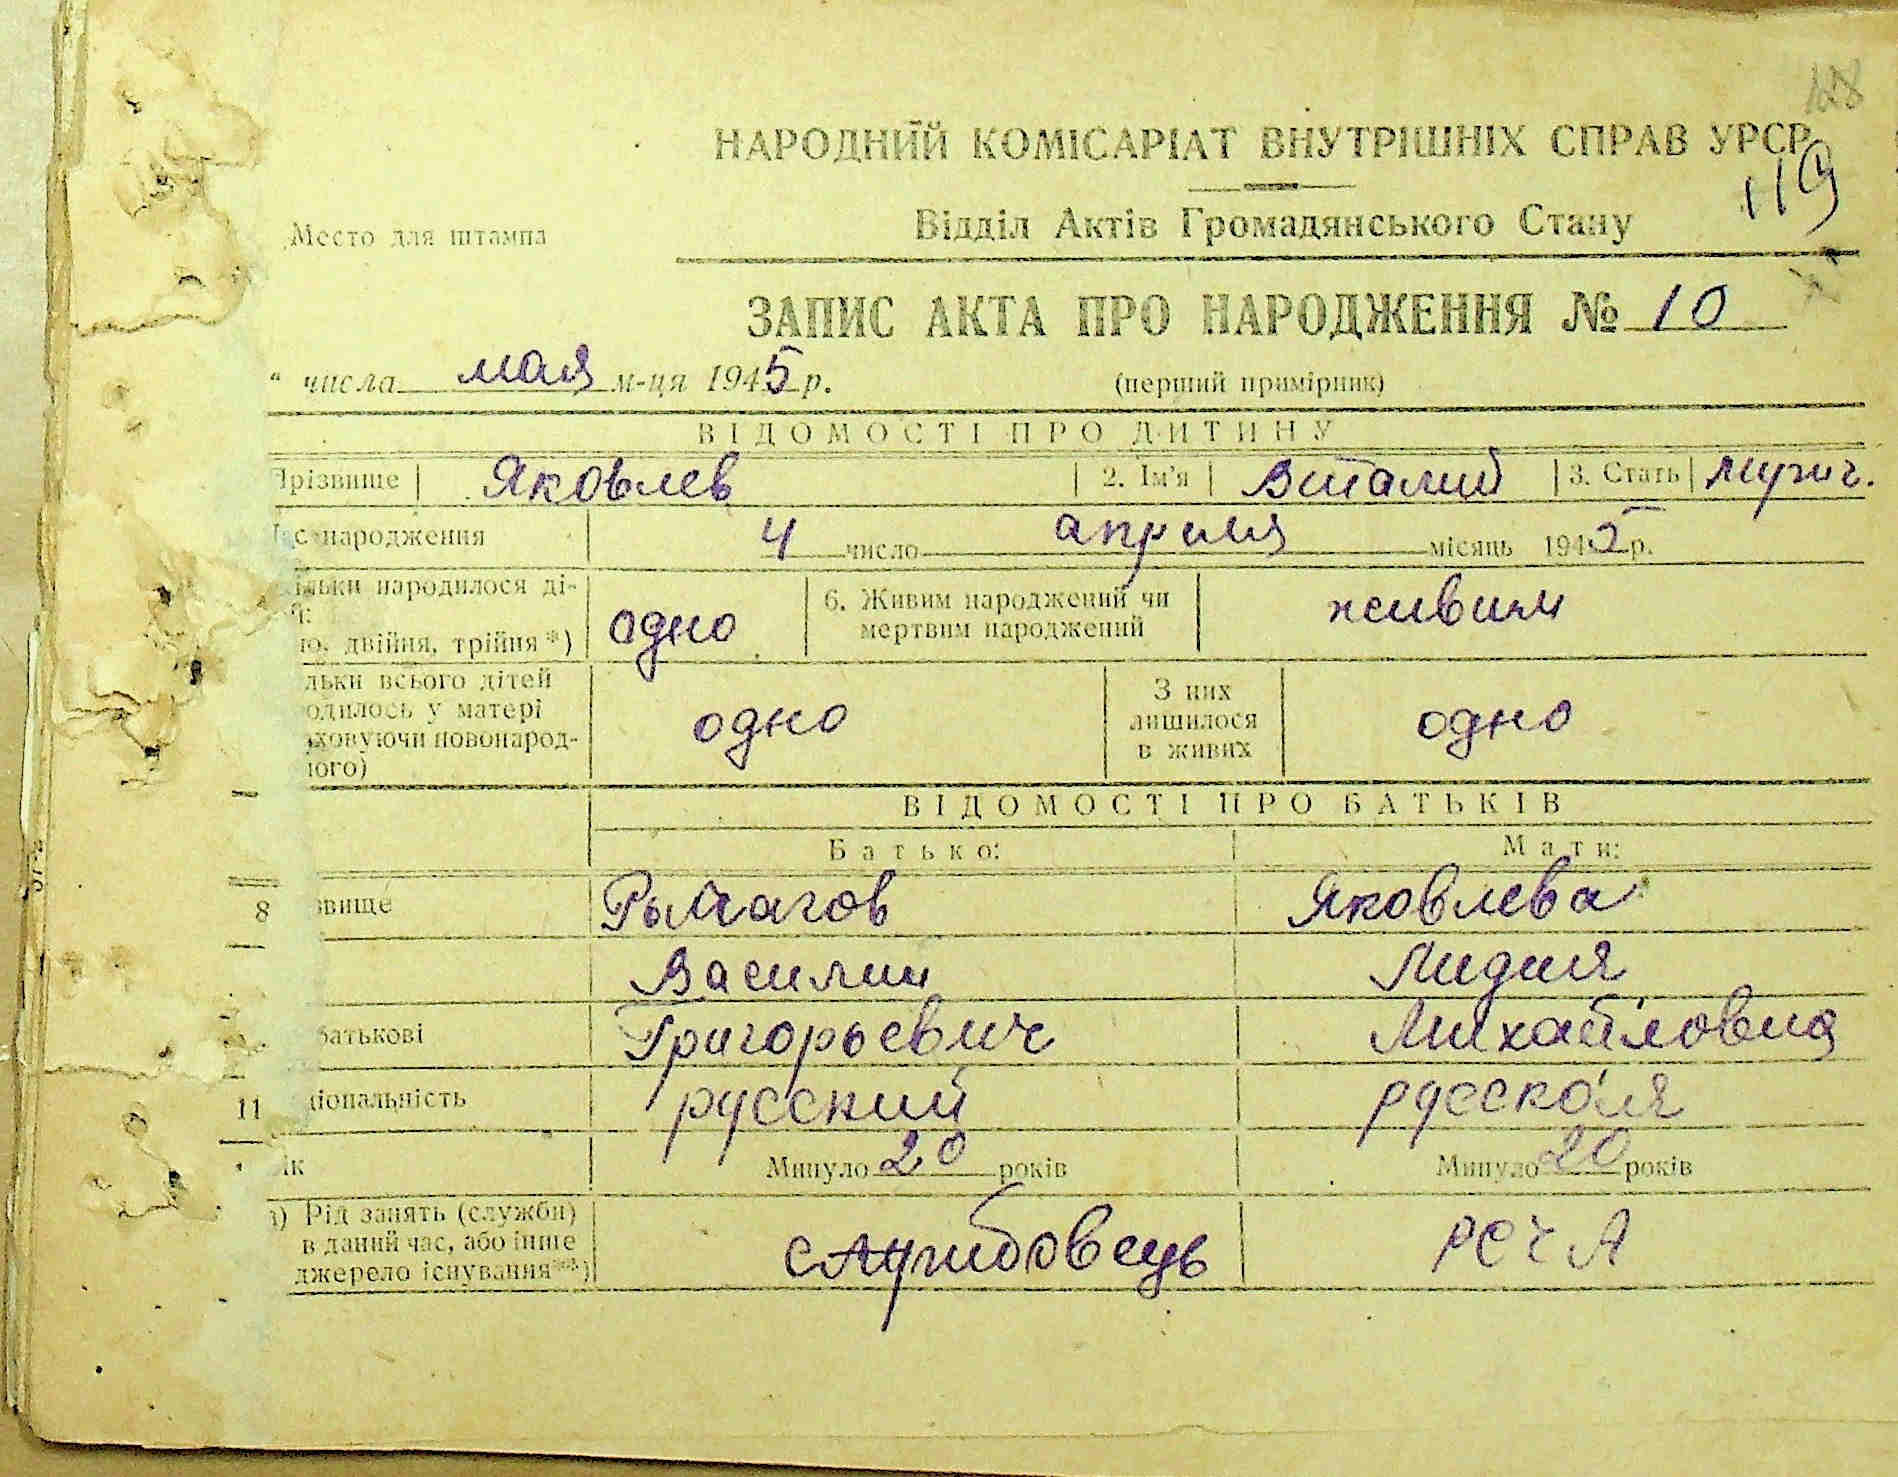 128
НАРОДНИЙ КОМІСАРІАТ ВНУТРІШНІХ СПРАВ УРСР
119
Место для штампа
Відділ Актів Громадянського Стану
ЗАПИС АКТА ПРО НАРОДЖЕННЯ № 10
" числа мая м-ця 1945 р. (перший примірник)
ВІДОМОСТІ ПРО ДИТИНУ
Прізвище Яковлев 2. Ім'я Виталий 3. Стать мужч.
Час народження 4 число апреля місяць 1945 р.
ільки народилося ді-
й:
но, двійня, трійня*) одно 6. Живим народжений чи
мертвим народжений живим
льки всього дітей
одилось у матері
аховуючи новонарод-
ного) одно З них
лишилося
в живих одно
ВІДОМОСТІ ПРО БАТЬКІВ
Батько: Мати:
8 звище Яковлева
Василий Лидия
батькові Григорьевич Михайловна
11 ціональність русский
ік Минуло 20 років Минуло 20 років
а) Рід занять (служби)
в даний час, або інше
джерело існування**) службовець РСЧА